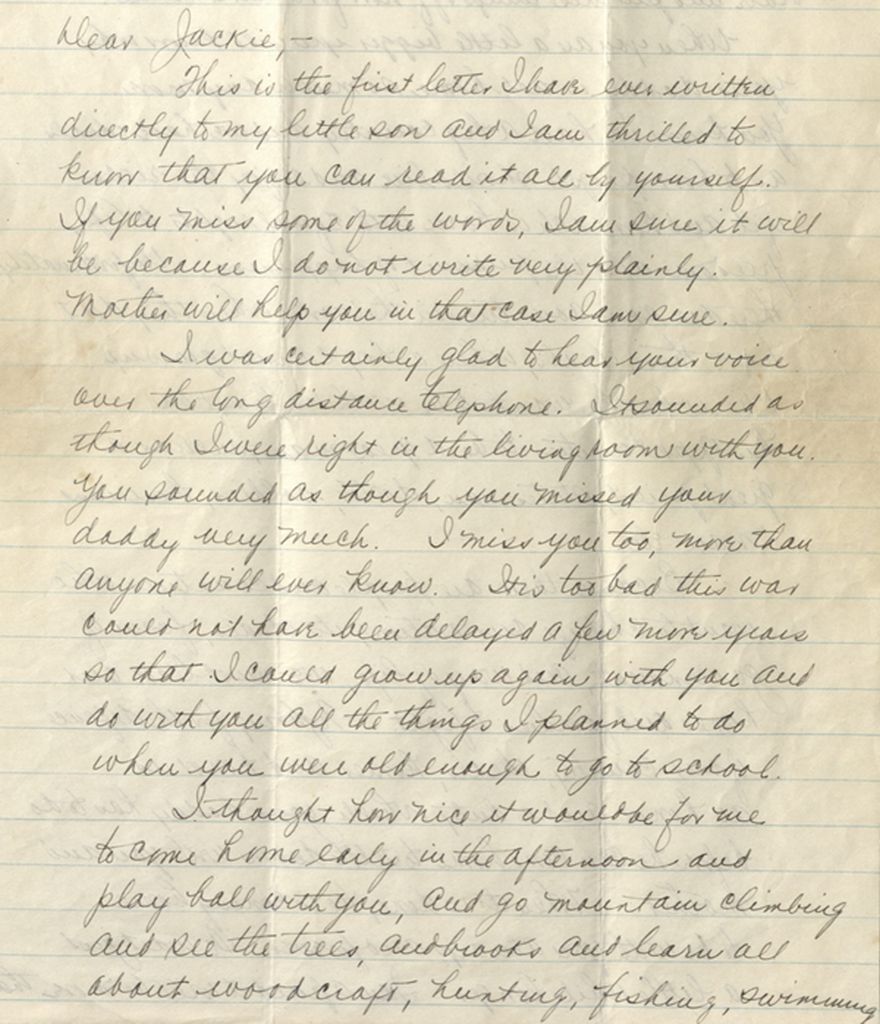 Dear Jackie,—
This is the first letter I have ever written
directly to my little son and I am thrilled to
know that you can read it all by yourself.
If you miss some of the words, I am sure it will
be because I do not write very plainly.
Mother will help you in that case I am sure.
I was certainly glad to hear your voice
over the long distance telephone. It sounded as
though I were right in the living room with you.
You sounded as though you missed your
daddy very much. I miss you too, more than
anyone will ever know. It is too bad this war
could not have been delayed a few more years
so that I could grow up again with you and
do with you all the things I planned to do
when you were old enough to go to school.
I thought how nice it would be for me
to come home early in the afternoon and
play ball with you, and go mountain climbing
and see the trees, and brooks and learn all
about woodcraft, hunting, fishing, swimming